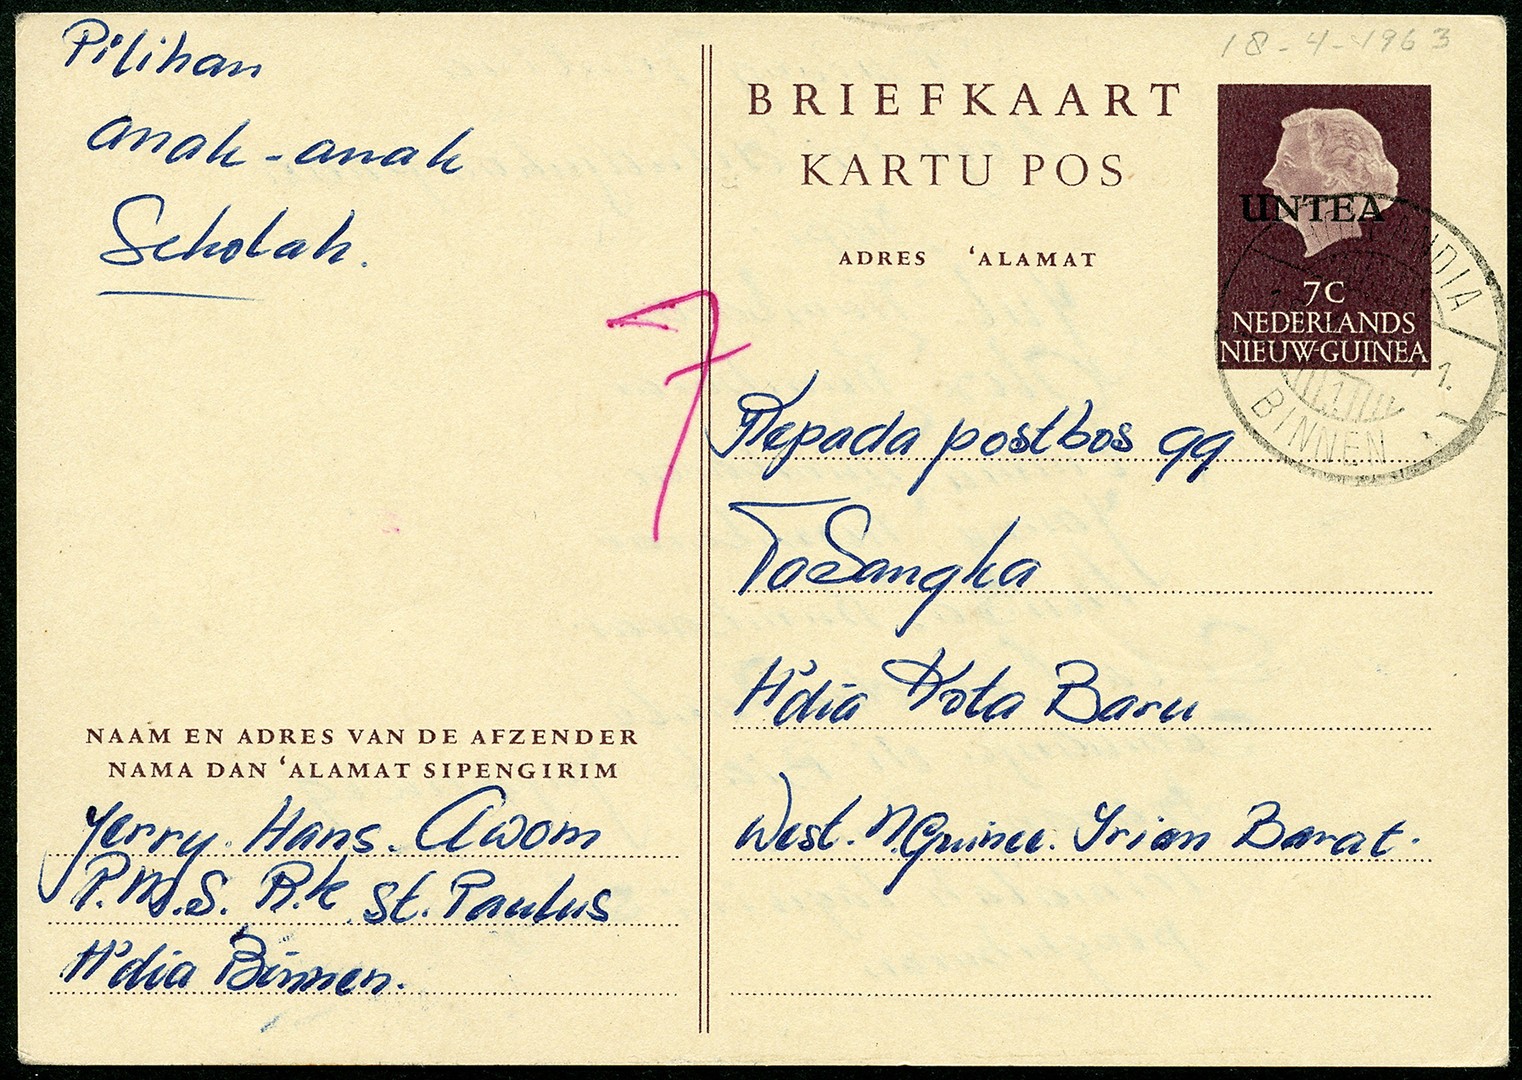 Pilihan
anak-anak
Sekolah.
18-4-1963
BRIEFKAART
KARTU POS
ADRES ‘ALAMAT
UNTEA
7C
NEDERLANDS
NIEUW-GUINEA
BINNEN
7
Kepada postbos qq
ToSangka
H'dia Kota Baru
West. N.Guinee. Irian Barat.
NAAM EN ADRES VAN DE AFZENDER
NAMA DAN ‘ALAMAT SIPENGIRIM
Jerry. Hans. Awom
P.M.S. R.k St. Paulus
H'dia Binnen.